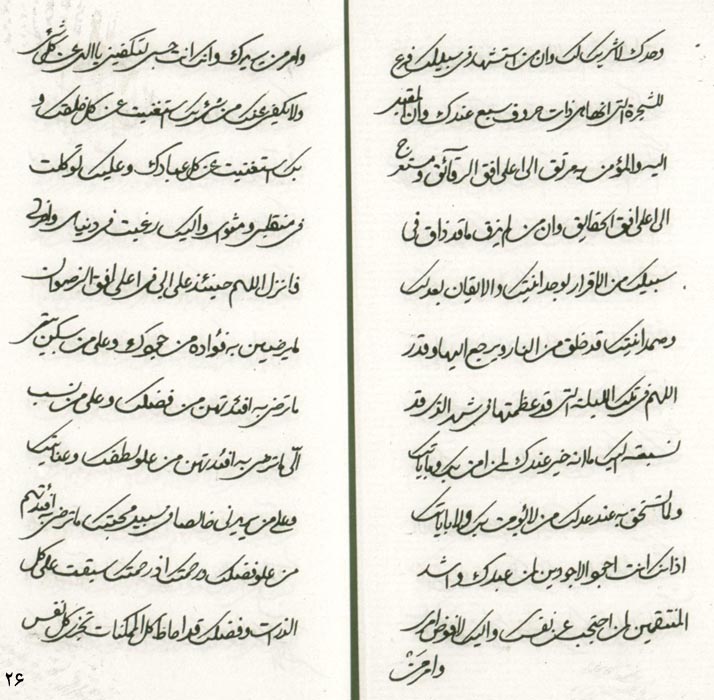 وحدك لا شريك لك وان من استشهد في سبيلك فرع
للشجرة التي انها هي ذات حروف سبع عندك وان المقبل
اليه والمؤمن به مرتق الى اعلى افق الرقائق ومستعرج
الى اعلى افق الحقايق وان من لم يذق ما قد ذاق في
سبيلك من الاقرار لوحدانيتك والايقان بعدلك
وصمدانيتك قد خلق من النار ويرجع اليها وقدر
اللهم في تلك الليلة التي قد عظمتها في شهر الذي قد
نسبته اليك ما انه خير عندك لمن امن بك وباياتك
ولما تستحق به عند عدلك من لا يؤمن بك ولا باياتك
اذ انك انت اجود الاجودين لمن عبدك واشد
المنتقمين لمن احتجب عن نفسك واليك لافوض امري
وامر من
وامر من يريدك وانك انت حسبي لتكفيني يا الهي عن كل شيء
ولا يكفي عندك من شيء بك استغنيت عن كل خلقك و
بك استغنيت عن كل عبادك وعليك توكلت
في منقلبي ومثواي واليك رغبت في دنياي واخرتي
فانزل اللهم حينئذ علي الي في اعلى افق الرضوان
لمن فؤاده من وعلى من سكن
ما ترضى به افئدتهن من فضلك وعلى من نسب
الي ما ترضى به افئدتهن من علو لطفك وعنايتك
وعلى من يريدني خالصا في سبيل محبتك ما ترضى به افئدتهم
من علو فضلك ورحمتك اذ رحمتك سبقت على كل
الذرات وفضلك قد احاط كل الممكنات تجزي كل نفس
۲۶